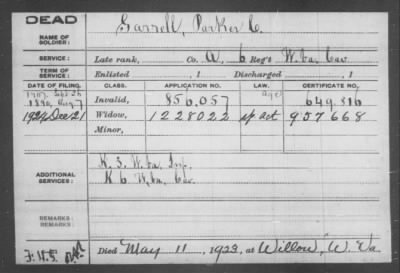 DEAD
NAME OF SOLDIER: Garrell, Parker C.
SERVICE: Late rank, Co. A, 6 Reg't W. Va. Cav.
TERM OF SERVICE: Enlisted , 1 Discharged , 1
DATE OF FILING. CLASS. APPLICATION NO. LAW. CERTIFICATE NO.
1890, Aug 7 Invalid, 856,057 649,816
1924 Dec 21 Widow, 1228022 957668
Minor,
ADDITIONAL SERVICES: K. 3. W. Va. Inf.
K 6 W. Va. Cav
REMARKS:
Died May 11, 1923, at Willow, W. Va